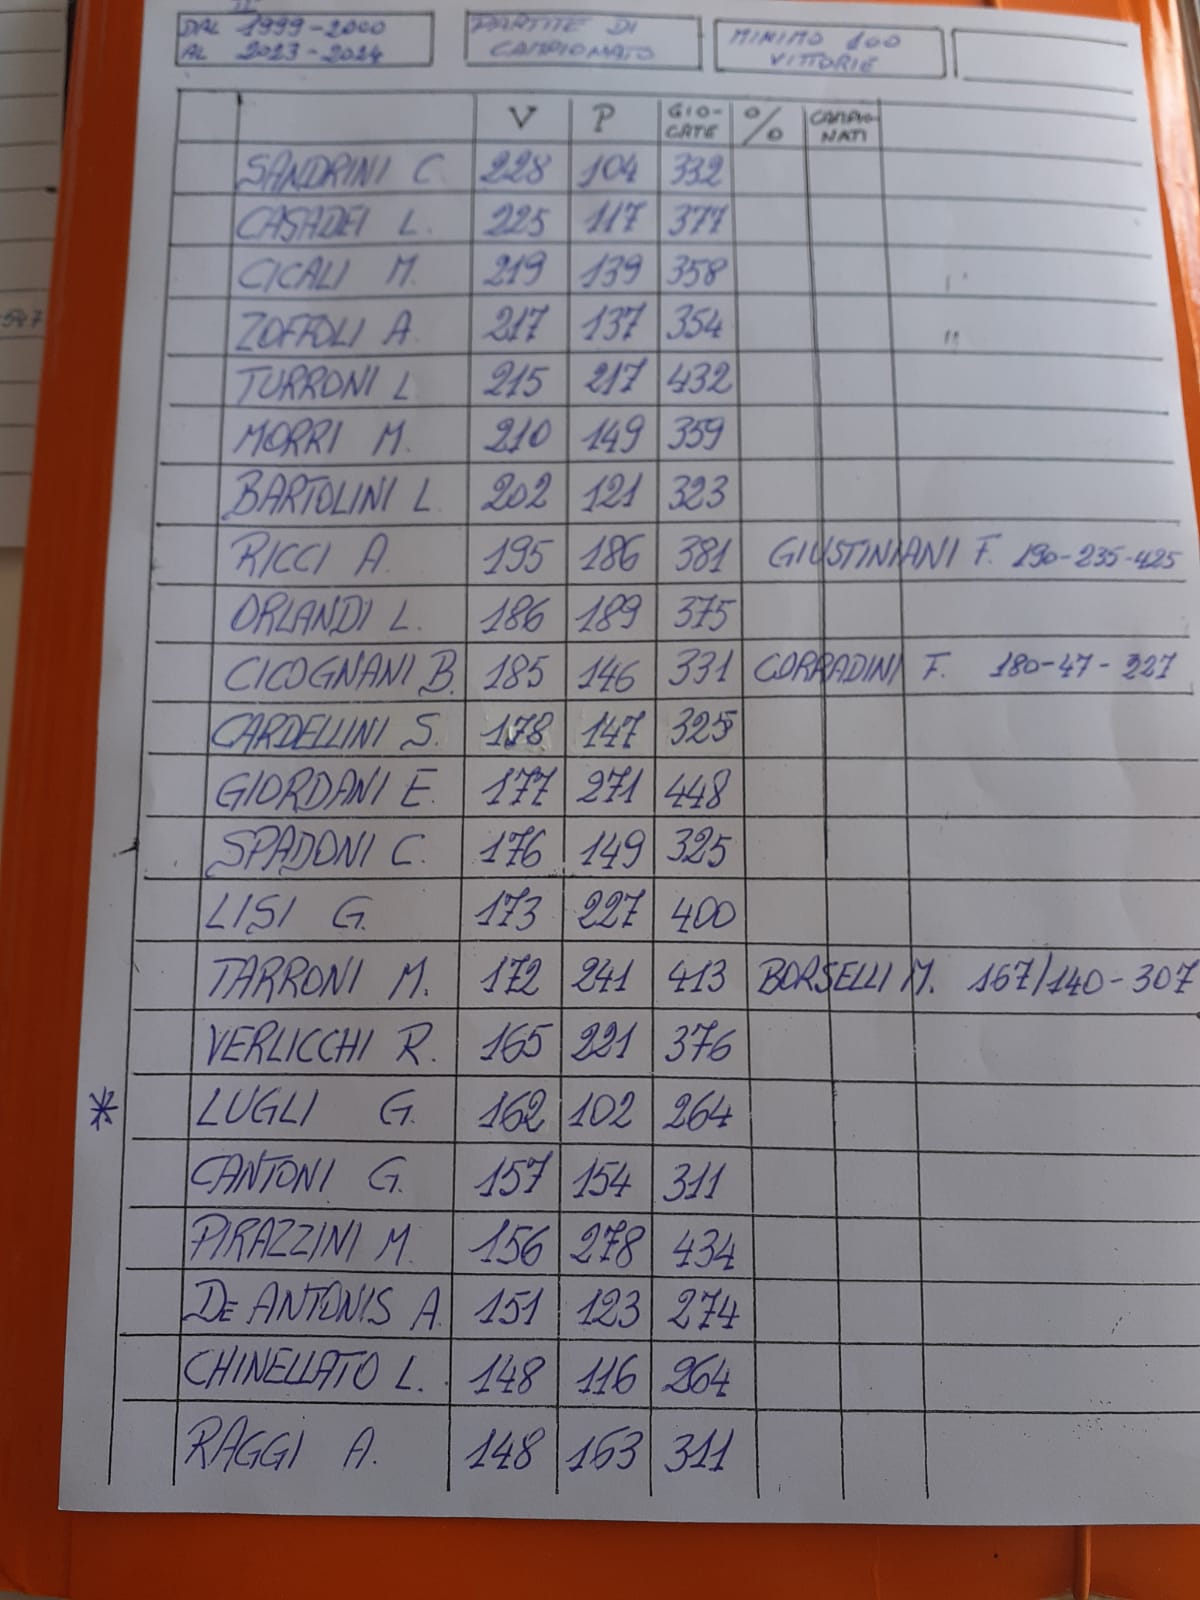 DAL 1999-2000
AL 2023-2024
PARTITE DI
CAMPIONATO
MINIMO 100
VITTORIE
V P GIO-CATE % CAMPIO-NATI
SANDRINI C 228 104 332
CASADEI L. 225 117 377
CICALI M. 219 139 358
ZOFFOLI A 217 137 354 "
TURRONI L 215 217 432
MORRI M. 210 149 359
BARTOLINI L 202 121 323
RICCI A. 195 186 381 GIUSTINIANI F. 190-235-425
ORLANDI L. 186 189 375
CICOGNANI B. 185 146 331 CORRADINI F. 180-47-227
CARDELLINI S. 178 147 325
GIORDANI E. 177 271 448
SPADONI C. 176 149 325
LISI G. 173 227 400
TARRONI M. 172 241 413 BORSELLI M. 167/140-307
VERLICCHI R. 165 221 376
* LUGLI G. 162 102 264
CANTONI G. 157 154 311
PIRAZZINI M. 156 278 434
DE ANTONIS A. 151 123 274
CHINELLATO L. 148 116 264
RAGGI A. 148 163 311